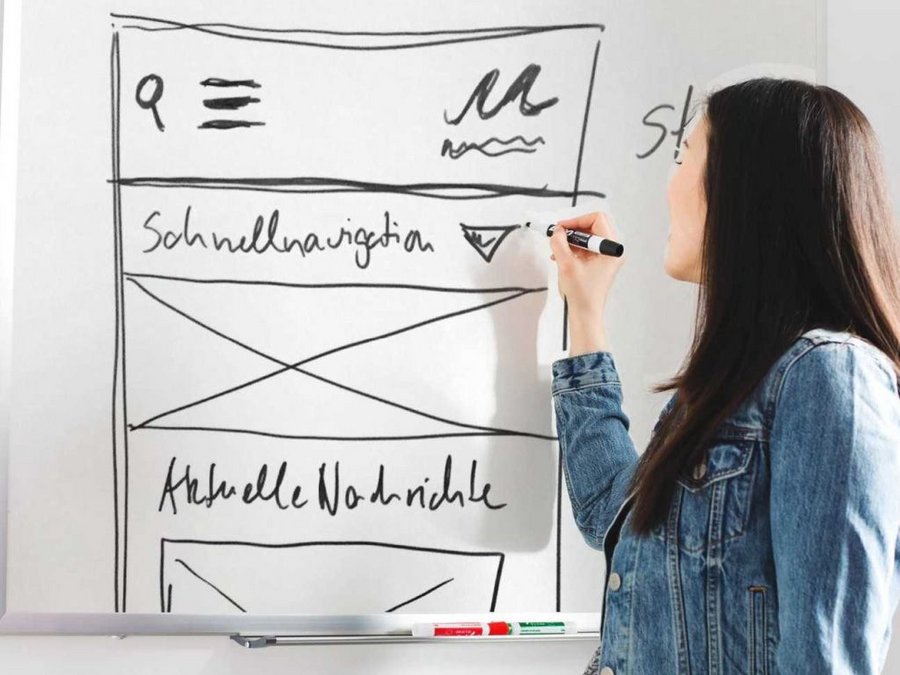 Schnellnavigation
Aktuelle Nachrichte